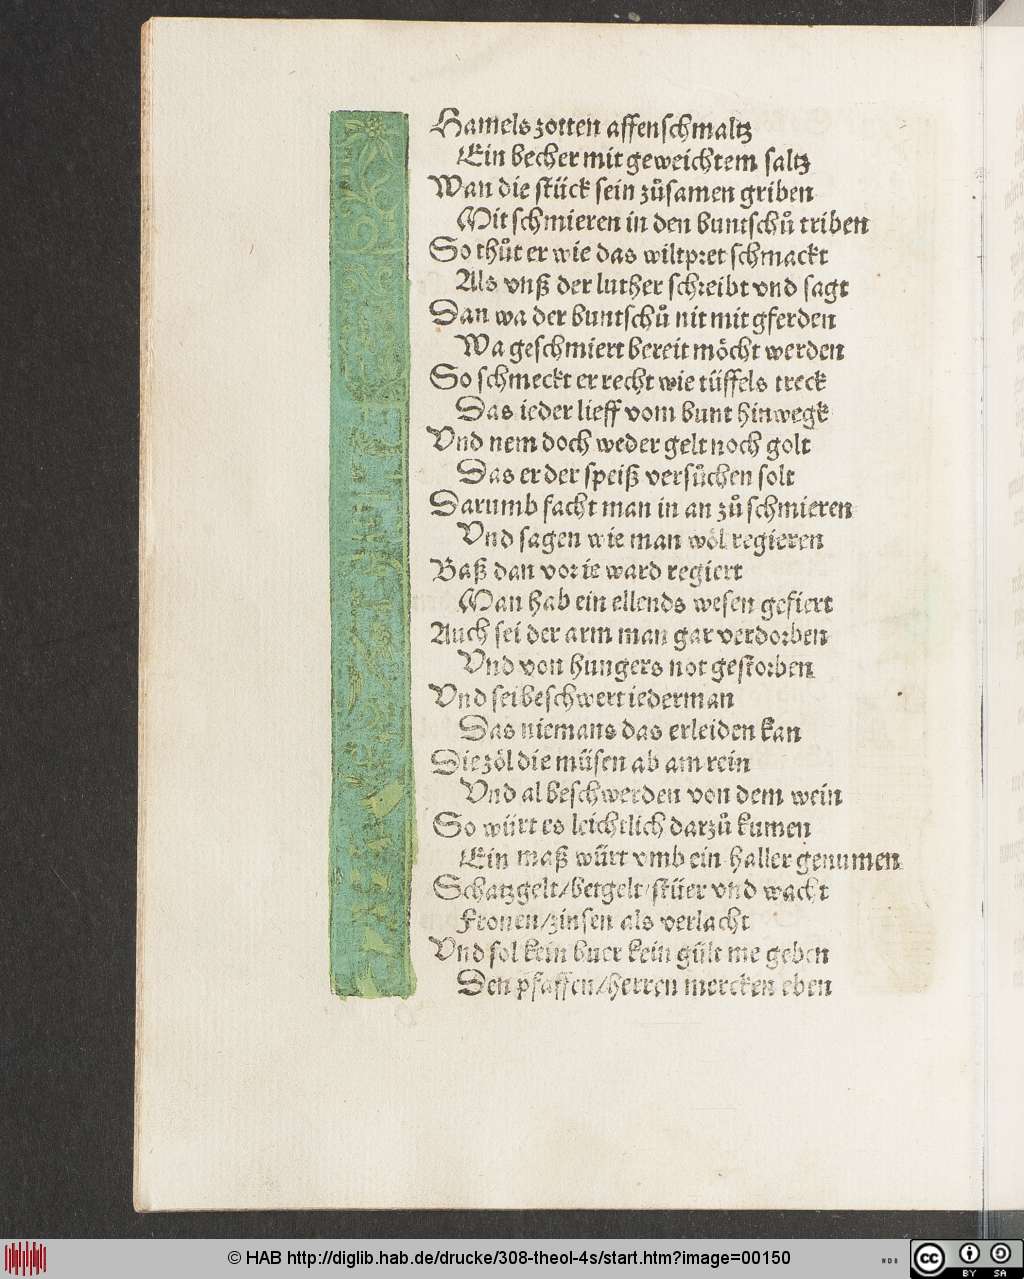 Hamels zotten affenschmaltz
Ein becher mit geweichtem saltz
Wan die stück sein zůsamen griben
Mit schmieren in den buntschů triben
So thůt er wie das wiltpret schmackt
Als vnß der luther schreibt vnd sagt
Dan wa der buntschů nit mit gferden
Wa geschmiert bereit möcht werden
So schmeckt er recht wie tüffels treck
Das ieder lieff vom bunt hinwegk
Vnd nem doch weder gelt noch golt
Das er der speiß versůchen solt
Darumb facht man in an zů schmieren
Vnd sagen wie man wöl regieren
Baß dan vor ie ward regiert
Man hab ein ellends wesen gefiert
Auch sei der arm man gar verdorben
Vnd von hungers not gestorben
Vnd sei beschwert iederman
Das niemans das erleiden kan
Die zöl die müsen ab am rein
Vnd al beschwerden von dem wein
So würt es leichtlich darzů kumen
Ein maß würt vmb ein haller genumen
Schatzgelt/betgelt/stüer vnd wacht
Fronen/zinsen als verlacht
Vnd sol kein buer kein gült me geben
Den pfaffen/herren mercken eben
© HAB http://diglib.hab.de/drucke/308-theol-4s/start.htm?image=00150
WDB
cc BY SA